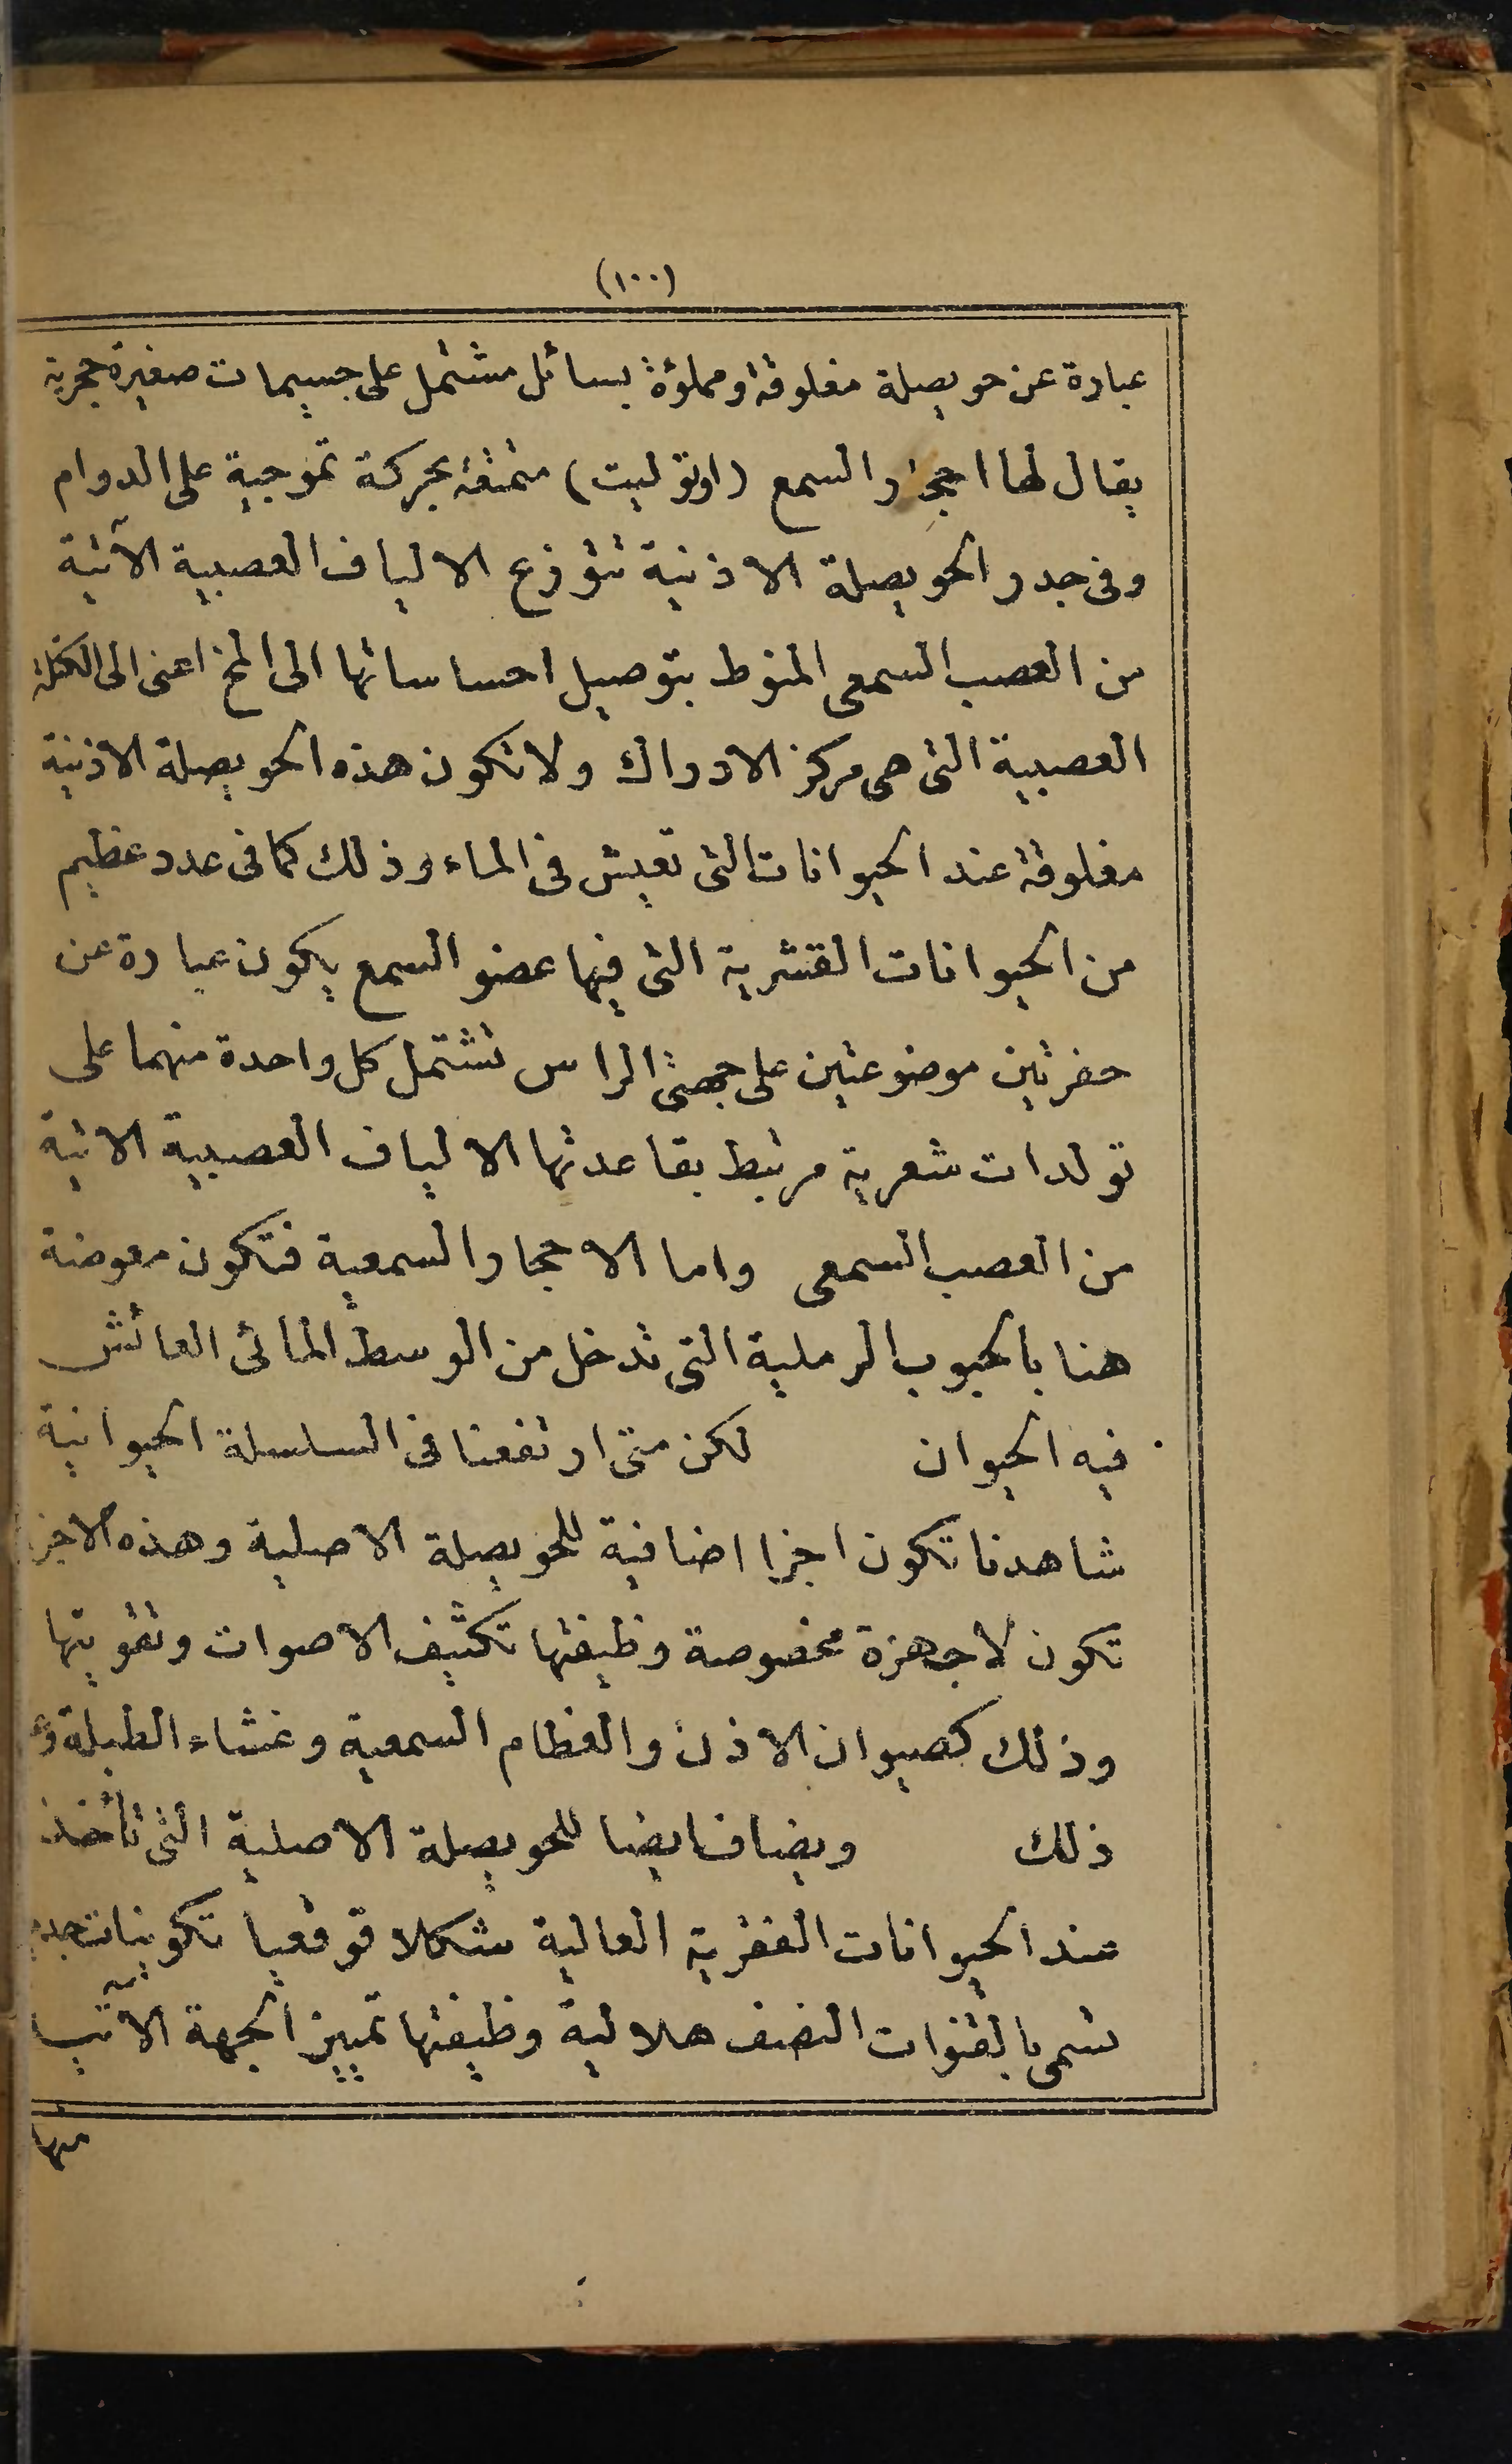 (١٠٠)
عبارة عن حويصلة مغلوقة ومملؤة بسائل مشتمل على جسيمات صغيرة حجرية
يقال لها احجار السمع (اوتوليت) متمتعة بحركة تموجية على الدوام
وفى جدر الحويصلة الاذنية تتوزع الالياف العصبية الآتية
من العصب السمعى المنوط بتوصيل احساساتها الى المخ اعنى الى الكتلة
العصبية التى هى مركز الادراك ولا تكون هذه الحويصلة الاذنية
مغلوقة عند الحيوانات التى تعيش فى الماء وذلك كما فى عدد عظيم
من الحيوانات القشرية التى فيها عضو السمع يكون عبارة عن
حفرتين موضوعتين على جهتى الراس تشتمل كل واحدة منهما على
تولدات شعرية مرتبط بقاعدتها الالياف العصبية الاتية
من العصب السمعى واما الاحجار السمعية فتكون معوضة
هنا بالحبوب الرملية التى تدخل من الوسط المائى العائش
فيه الحيوان لكن متى ارتفعنا فى السلسلة الحيوانية
شاهدنا تكون اجزا اضافية للحويصلة الاصلية وهذه الاجزا
تكون لاجهزة مخصوصة وظيفتها تكثيف الاصوات وتقويتها
وذلك كصيوان الاذن والعظام السمعية وغشاء الطبلة
ذلك ويضاف ايضا للحويصلة الاصلية التى تأخذ
عند الحيوانات الفقرية العالية شكلا قوقعيا تكوينات
تسمى بالقنوات النصف هلالية وظيفتها تمييز الجهة الاتية
منها